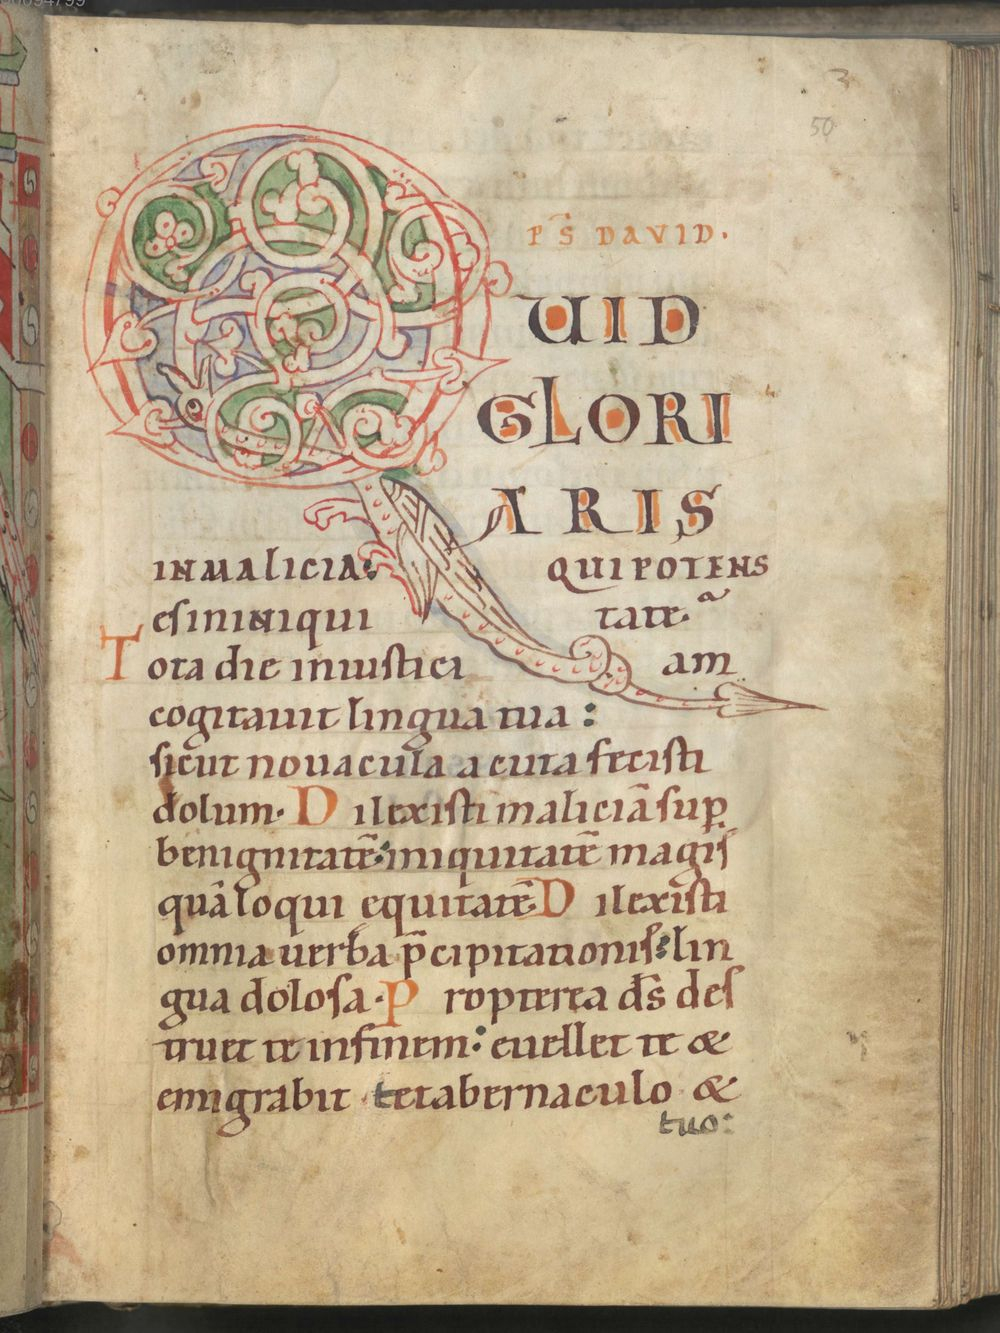 50
PS̄ DAVID.
QUID
GLORI
ARIS
INMALICIA: QUI POTENS
es ininiqui tate.
Tota die iniustici am
cogitauit lingua tua :
sicut nouacula acuta fecisti
dolum. Dilexisti maliciā sup̄
benignitatē: iniquitatē magis
quā loqui equitatē Dilexisti
omnia uerba p̄cipitationis: lin
gua dolosa. Propterea ds̄ des
truet te infinem: euellet te &
emigrabit te tabernaculo &
tuo: